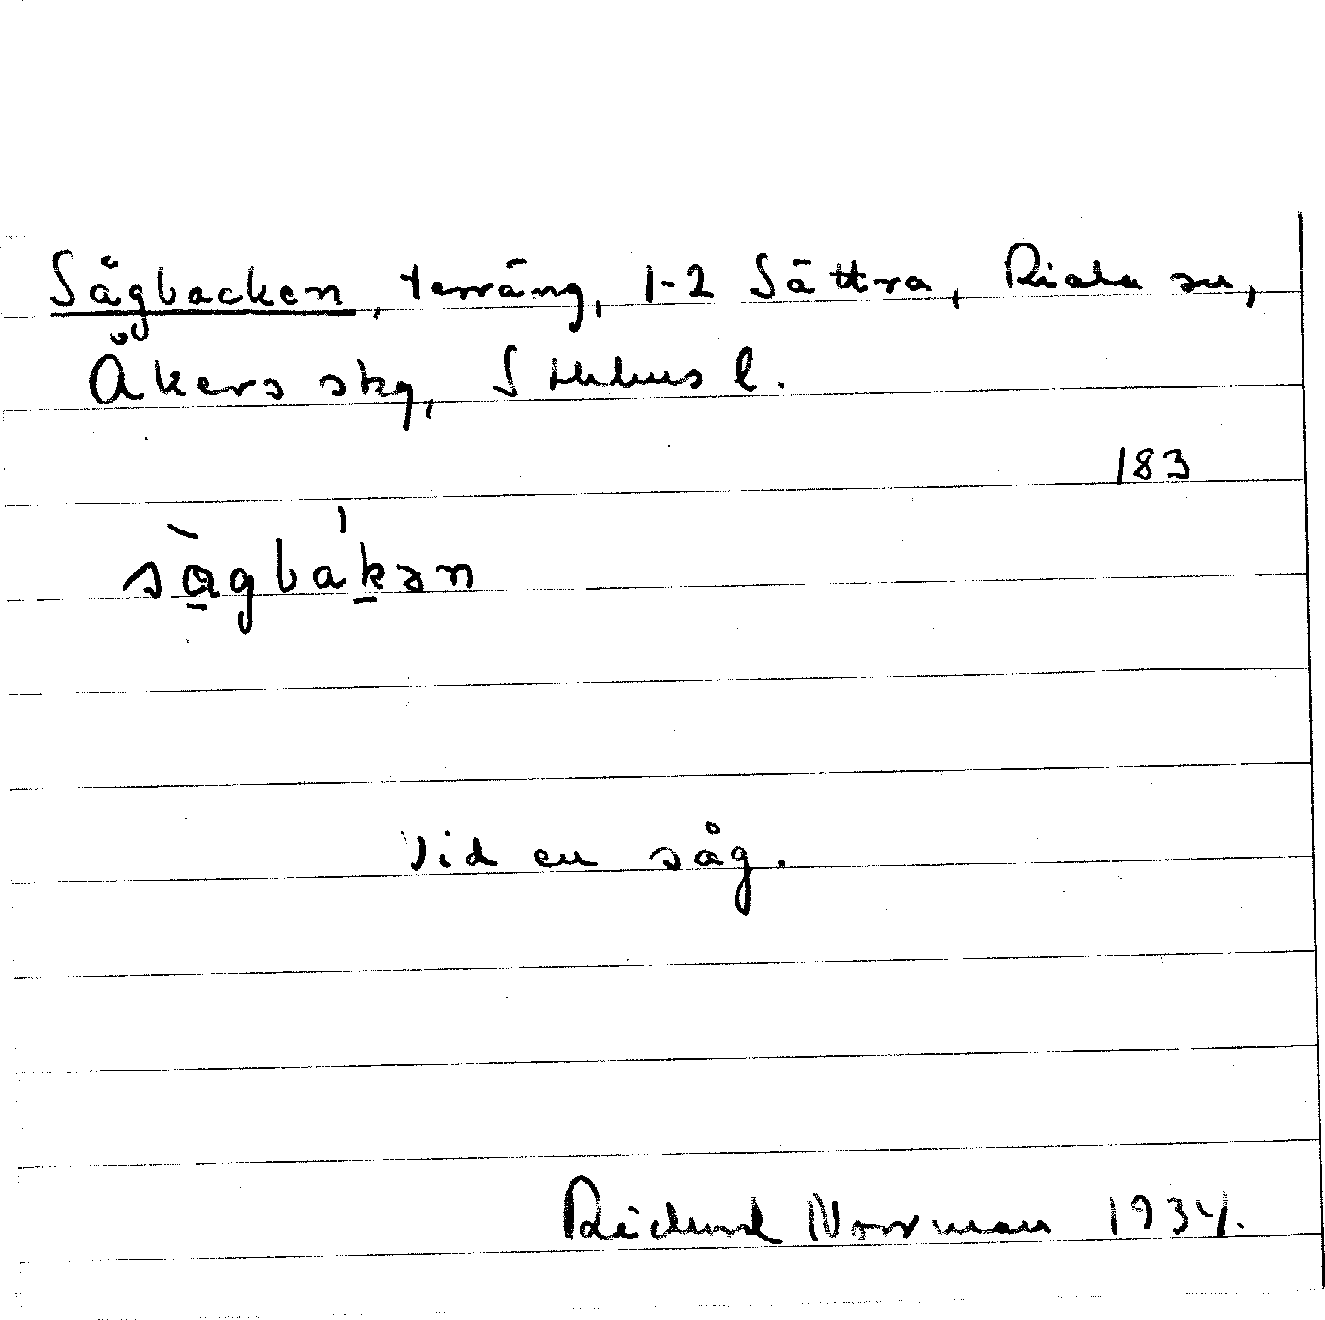 Sågbacken, terräng, 1-2 Sättra, Riala sn,
Åkers skg, Sthlms l.
183
sàgbákən
Vid en såg.
Richard Norrman 1934.